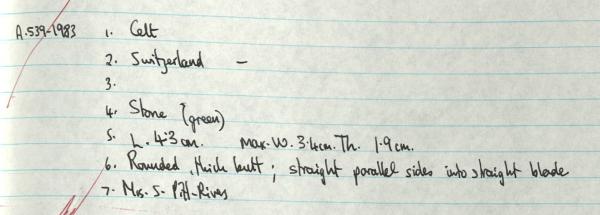 A.539-1983 1. Celt
2. Switzerland –
3.
4. Stone (green)
5. L. 4.3 cm. max. W. 3.4cm. Th. 1.9 cm.
6. Rounded, thick butt; straight parallel sides into straight blade
7. Mrs. S. Pitt-Rivers